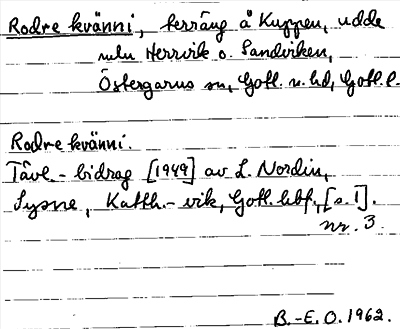 Rodre kvänni, terräng å Kuppen, udde
mln Herrvik o. Sandviken,
Östergarns sn, Gotl. n. hd, Gotl. l.
Rodre kvänni.
Tävl.-bidrag [1949] av L. Nordin,
Sysne, Katth.-vik, Gotl. hbf., [s. 1].
nr. 3
B.-E. O. 1962.